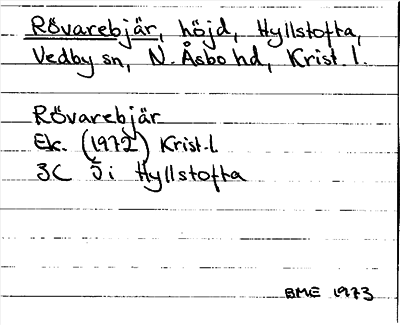 Rövarebjär, höjd, Hyllstofta,
Vedby sn, N. Åsbo hd, Krist. l.
Rövarebjär
Ek. (1972) Krist. l.
3C 5i Hyllstofta
BME 1973